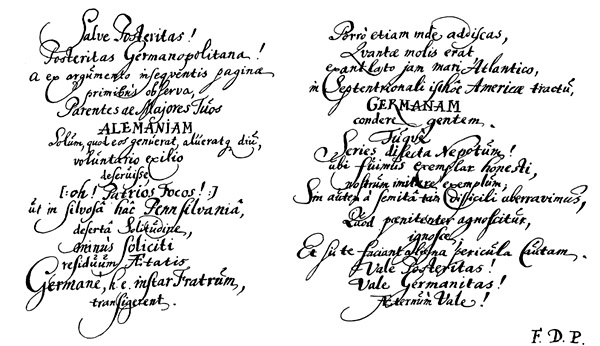 Salve Posteritas!
Posteritas Germanopolitana!
et ex argumento inseqventis paginæ
primitus observa,
Parentes ac Majores Tuos
ALEMANIAM
Solum, quod eos genuerat, alueratq diu,
voluntario exilio
deseruisse
[:oh! Patrios Focos!:]
ut in silvosâ hâc Pennsilvaniâ,
desertâ Solitudine,
minus soliciti
residuum Ætatis
Germane, h.e. instar Fratrum,
transigerent.
Porrò etiam inde addiscas,
Quantæ molis erat
exantlato jam mari Atlantico,
in Septentrionali isthôc Americæ tractu,
GERMANAM
condere gentem.
Tuque
Series dilecta Nepotum!
ubi fuimus exemplar honesti,
nostrum imitare exemplum,
Sin autem à semitâ tam difficili aberravimus,
Quod pœnitenter agnoscitur,
ignosce,
Et sic te faciant aliena pericula Cautam.
Vale Posteritas!
Vale Germanitas!
Æternùm Vale!
F. D. P.